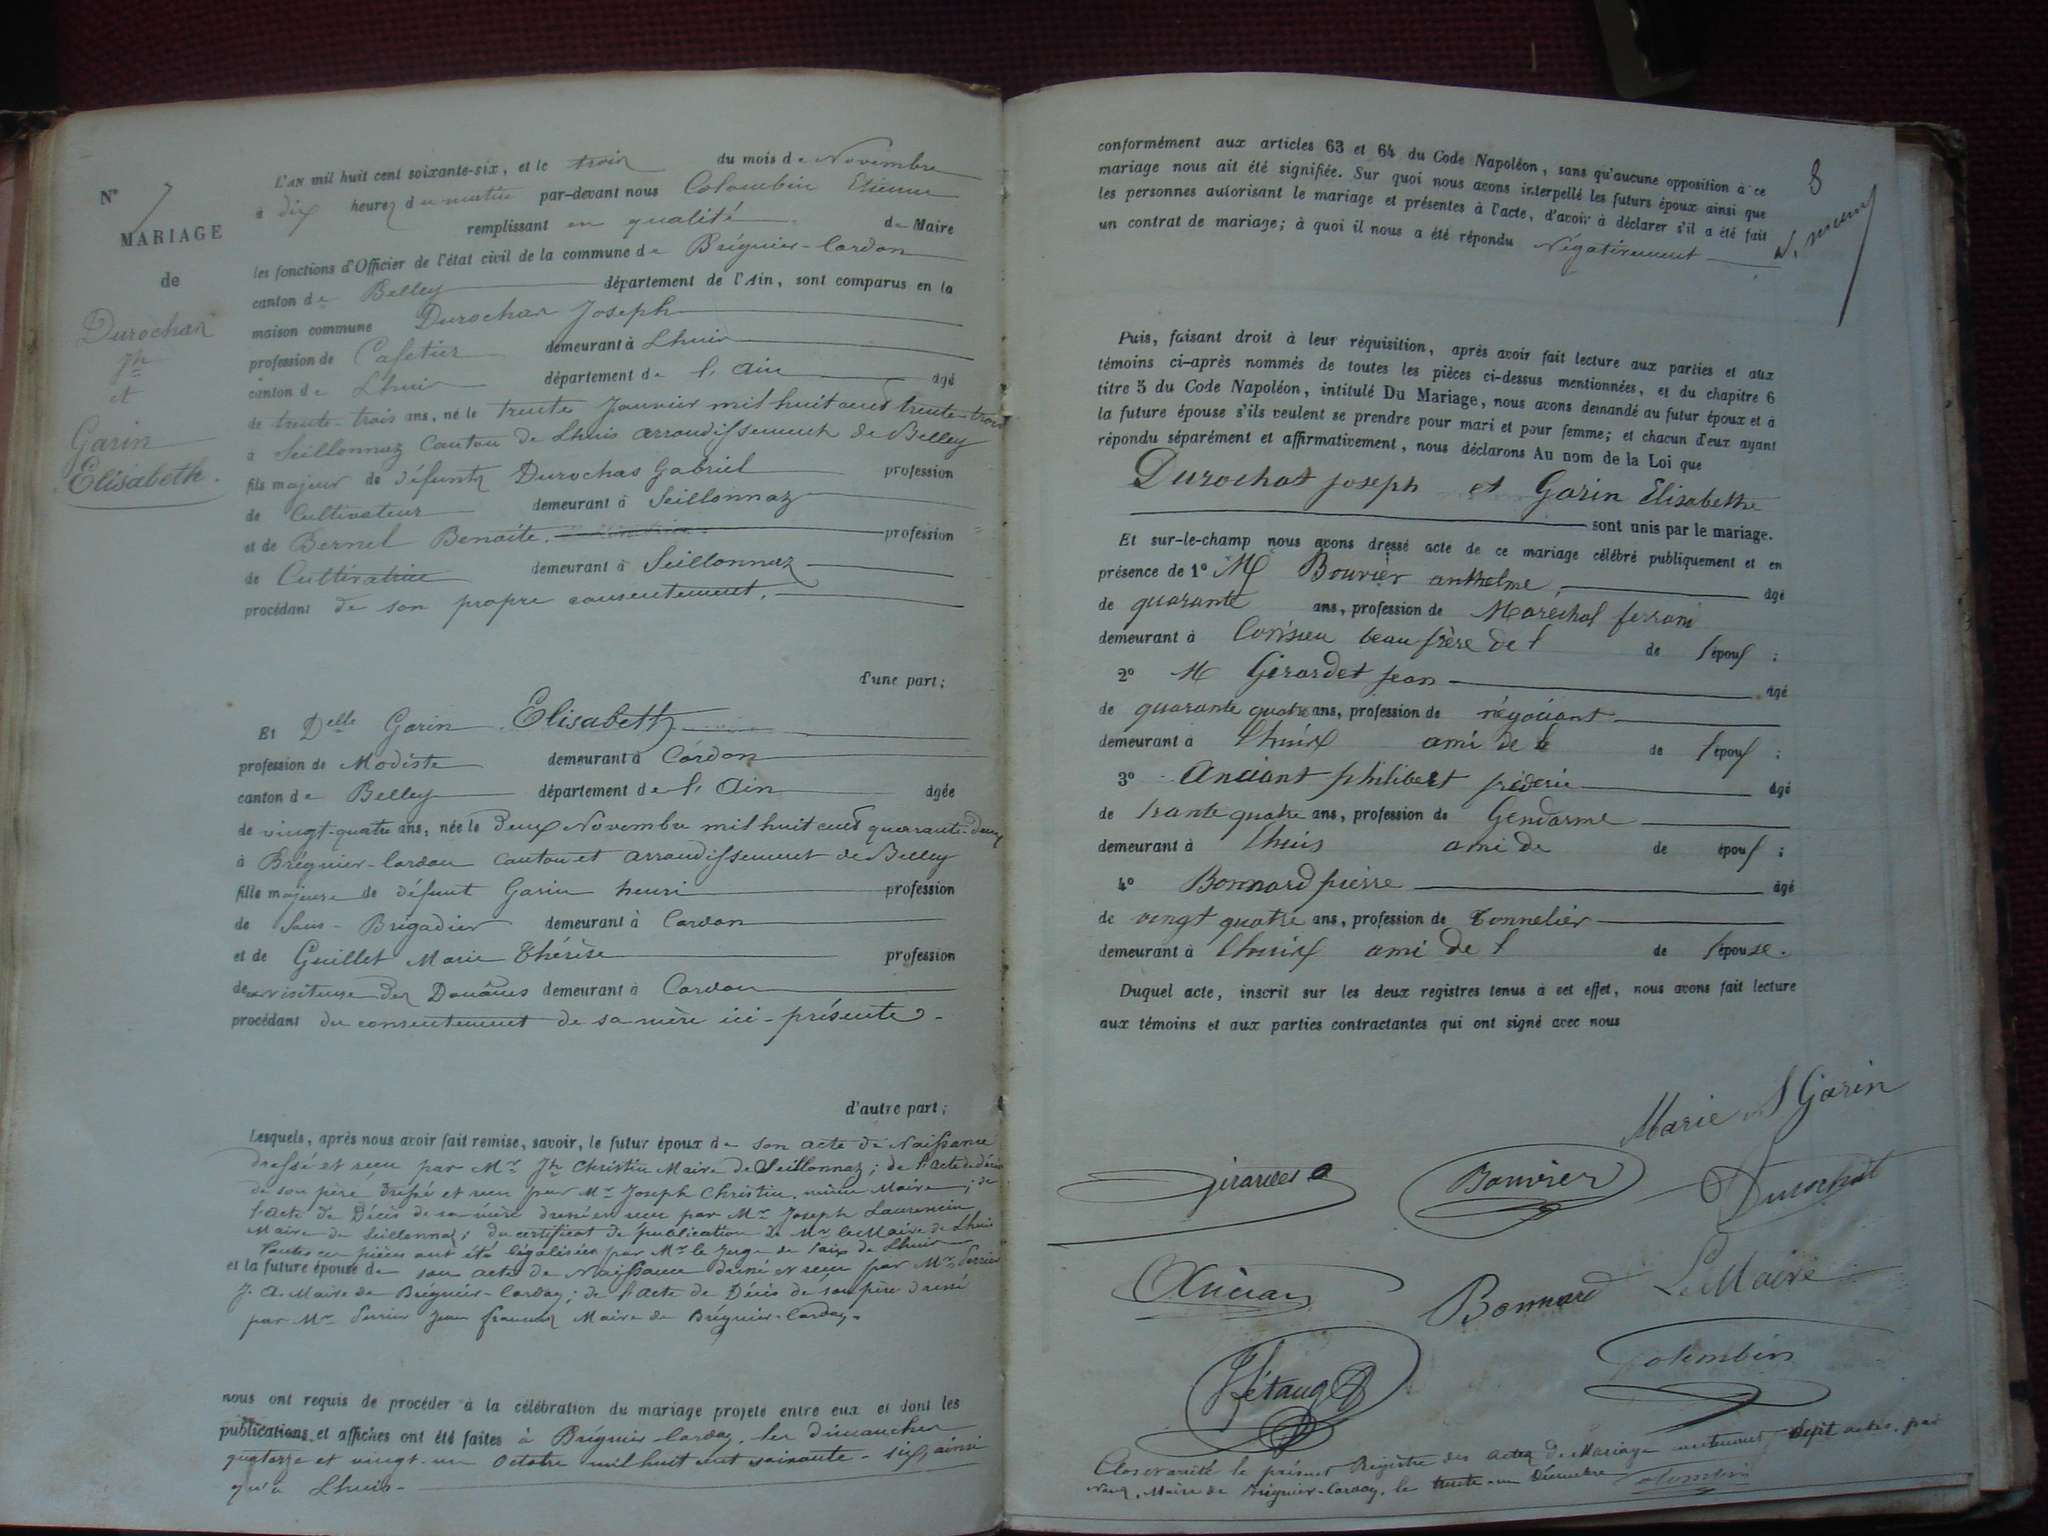 N° 7
MARIAGE
de
Durochat
Jh
et
Garin
Elisabeth.
L'AN mil huit cent soixante-six, et le trois du mois de Novembre
à dix heures du matin par-devant nous Colombin Etienne
remplissant en qualité de Maire
les fonctions d'Officier de l'état civil de la commune de Brégnier-Cordon
canton de Belley département de l'Ain, sont comparus en la
maison commune Durochat Joseph
profession de Cafetier demeurant à Lhuis
canton de Lhuis département de l'Ain âgé
de trente-trois ans, né le trente Janvier mil huit cent trente-trois
à Seillonnaz Canton de Lhuis arrondissement de Belley
fils majeur de défunts Durochat Gabriel profession
de Cultivateur demeurant à Seillonnaz
et de Bernel Benoite. profession
de Cultivatrice demeurant à Seillonnaz
procédant de son propre consentement.
d'une part;
Et Delle Garin Elisabeth
profession de Modiste demeurant à Cordon
canton de Belley département de l'Ain âgée
de vingt-quatre ans, née le deux Novembre mil huit cent quarante-deux
à Brégnier-Cordon canton et arrondissement de Belley
fille majeure de défunt Garin henri profession
de Sous-Brigadier demeurant à Cordon
et de Guillet Marie Thérèse profession
de visiteuse des Douânes demeurant à Cordon
procédant du consentement de sa mère ici-présente.
d'autre part;
Lesquels, après nous avoir fait remise, savoir, le futur époux de son acte de Naissance
dressé et reçu par Mr Jh Christin Maire de Seillonnaz; de l'acte de décès
de son père dressé et reçu par Mr Joseph Christin, même Maire; de
l'acte de Décès de sa mère dressé et reçu par Mr Joseph Laurencin
Maire de Seillonnaz; du certificat de publication de Mr le Maire de Lhuis
Toutes ces pièces ont été légalisées par Mr le Juge de Paix de Lhuis
et la future épouse de son acte de Naissance dressé et reçu par Mr Perrier
J. A. Maire de Brégnier-Cordon; de l'acte de Décès de son père dressé
par Mr Perrier Jean françois Maire de Brégnier-Cordon.
nous ont requis de procéder à la célébration du mariage projeté entre eux et dont les
publications et affiches ont été faites à Brégnier-Cordon, les dimanches
quatorze et vingt-un Octobre mil huit cent soixante-six, ainsi
qu'à Lhuis.
8
conformément aux articles 63 et 64 du Code Napoléon, sans qu'aucune opposition à ce
mariage nous ait été signifiée. Sur quoi nous avons interpellé les futurs époux ainsi que
les personnes autorisant le mariage et présentes à l'acte, d'avoir à déclarer s'il a été fait
un contrat de mariage; à quoi il nous a été répondu Négativement
Puis, faisant droit à leur réquisition, après avoir fait lecture aux parties et aux
témoins ci-après nommés de toutes les pièces ci-dessus mentionnées, et du chapitre 6
titre 5 du Code Napoléon, intitulé Du Mariage, nous avons demandé au futur époux et à
la future épouse s'ils veulent se prendre pour mari et pour femme; et chacun d'eux ayant
répondu séparément et affirmativement, nous déclarons Au nom de la Loi que
Durochat joseph et Garin Elisabethe
sont unis par le mariage.
Et sur-le-champ nous avons dressé acte de ce mariage célébré publiquement et en
présence de 1° M Bouvier anthelme, âgé
de quarante ans, profession de Marechal ferrant
demeurant à beau frère de l de l'époux ;
2° M Girardet jean âgé
de quarante quatre ans, profession de négociant
demeurant à Lhuis ami de l de l'époux ;
3° Anciant philibert âgé
de trante quatre ans, profession de Gendarme
demeurant à Lhuis ami de de époux ;
4° Bonnard pierre âgé
de vingt quatre ans, profession de Tonnelier
demeurant à Lhuis ami de l de l'épouse.
Duquel acte, inscrit sur les deux registres tenus à cet effet, nous avons fait lecture
aux témoins et aux parties contractantes qui ont signé avec nous
Marie Garin
Girardet Bouvier Durochat
Anciant Bonnard Le Maire
Colombin
Clos et arrêté le présent Registre des actes de Mariage contenant sept actes, par
Nous, Maire de Brégnier-Cordon, le trente-un Décembre Colombin